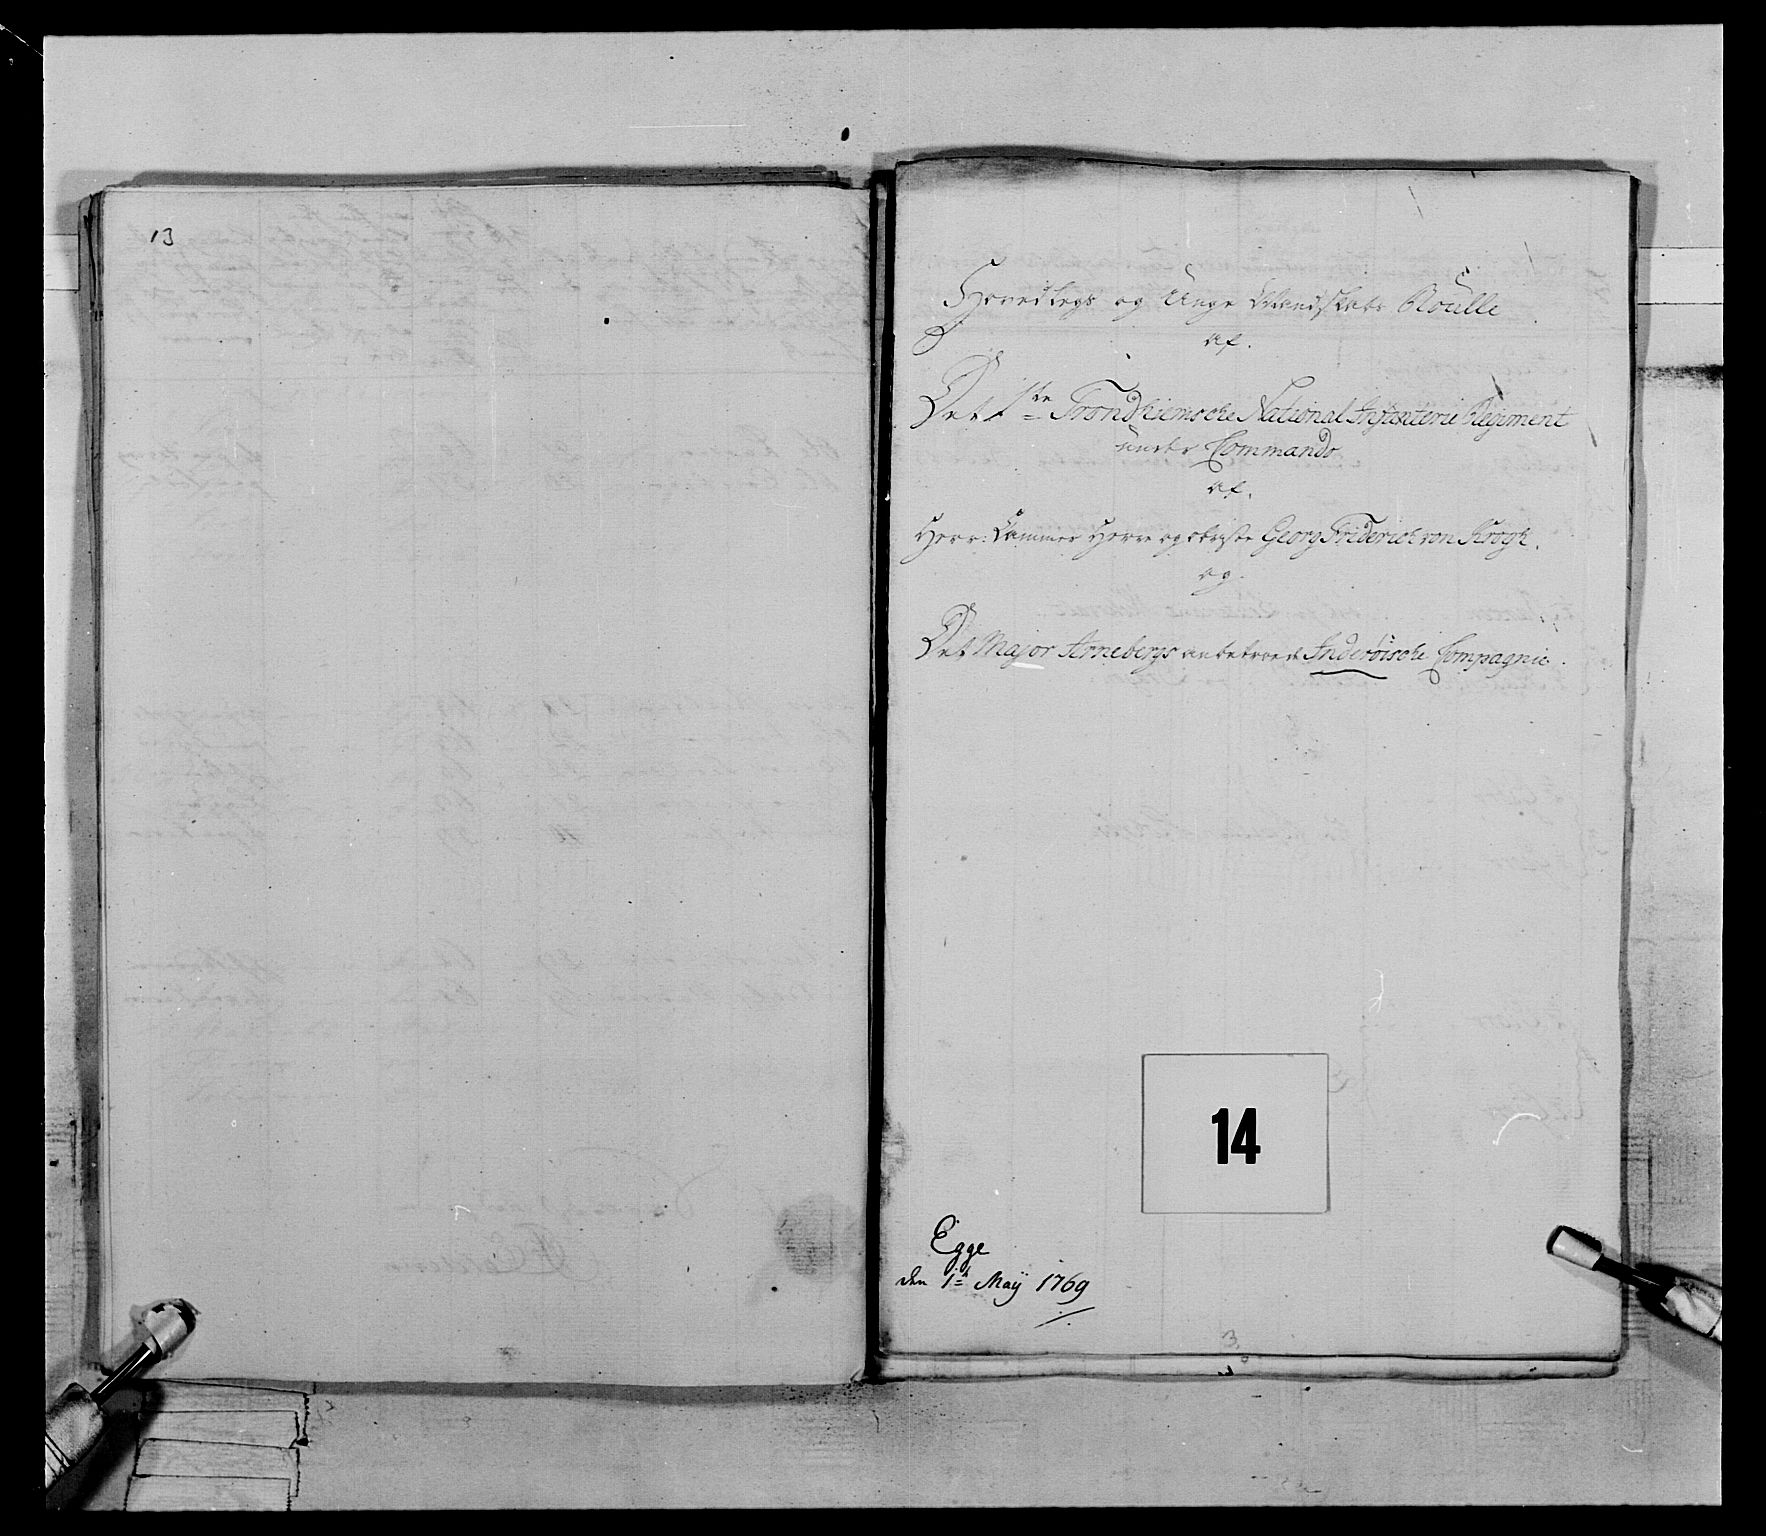 13
Hovedlegs og Unge Mandskabs Roulle
af.
Det 1ste Trondhiemsche National Infanterie Regiment
under Commando
af.
Herr: Cammer Herre og obriste Georg Friderich von Krogh.
og.
Det Major Arnebergs anbetroede Inderöische Compagnie.
14
Egge
den 1te Maÿ 1769
3